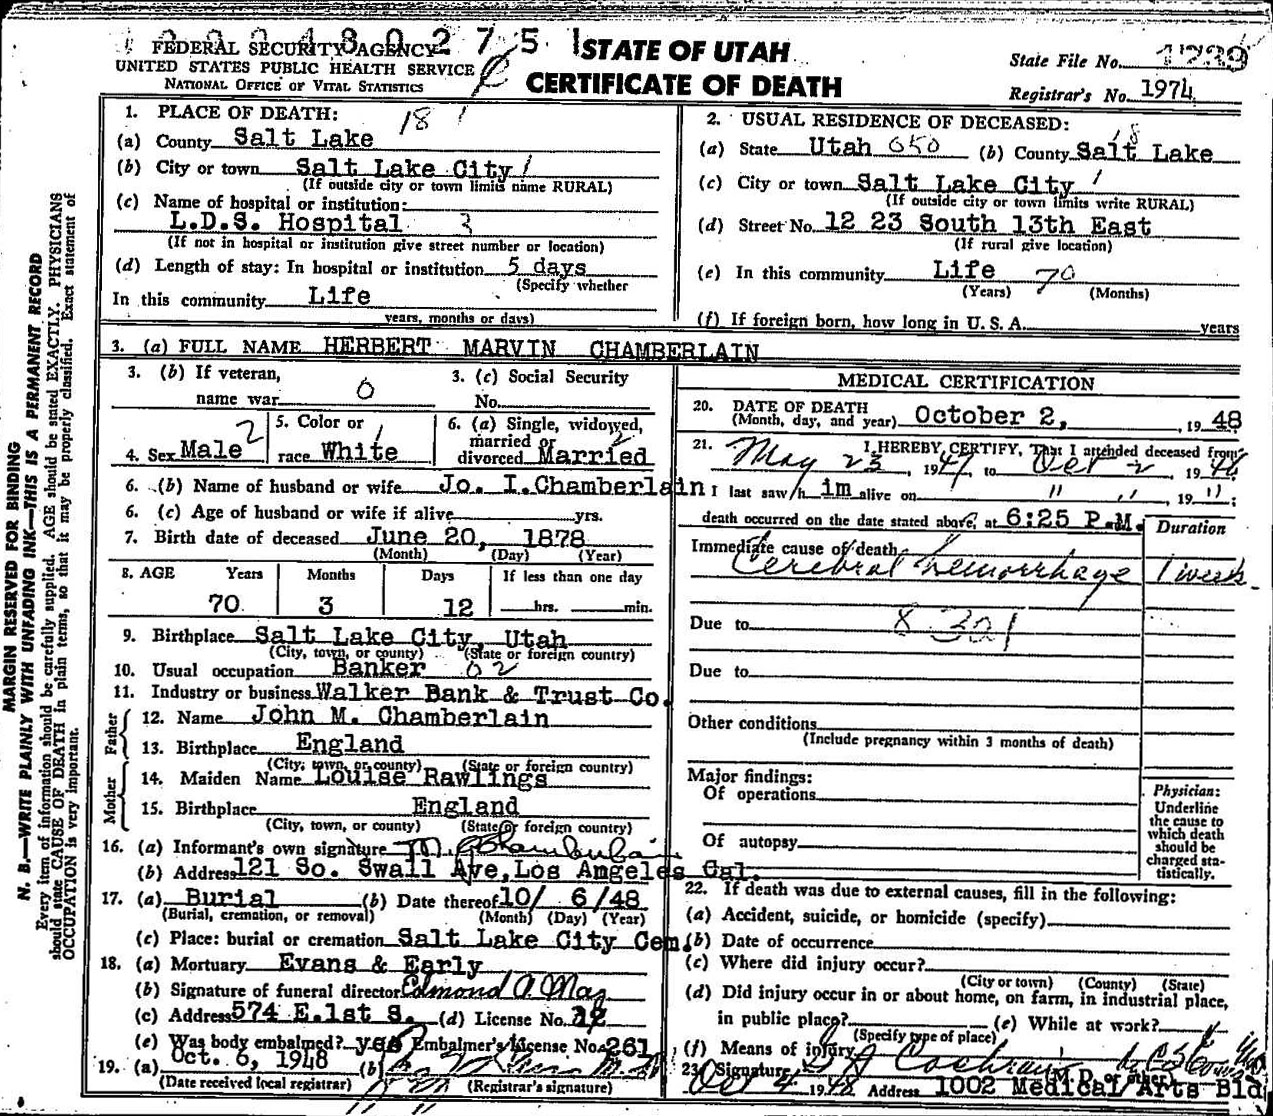 FEDERAL SECURITY AGENCY
UNITED STATES PUBLIC HEALTH SERVICE
NATIONAL OFFICE OF VITAL STATISTICS
STATE OF UTAH
CERTIFICATE OF DEATH
State File No.
Registrar's No. 1974
1. PLACE OF DEATH: 18 1
(a) County Salt Lake
(b) City or town Salt Lake City 1
(If outside city or town limits name RURAL)
(c) Name of hospital or institution:
L.D.S. Hospital 3
(If not in hospital or institution give street number or location)
(d) Length of stay: In hospital or institution 5 days
(Specify whether
In this community Life
years, months or days)
2. USUAL RESIDENCE OF DECEASED:
(a) State Utah 050 (b) County Salt Lake 18
(c) City or town Salt Lake City 1
(If outside city or town limits write RURAL)
(d) Street No. 12 23 South 13th East
(If rural give location)
(e) In this community Life 70
(Years) (Months)
(f) If foreign born, how long in U. S. A. years
3. (a) FULL NAME HERBERT MARVIN CHAMBERLAIN
3. (b) If veteran,
name war 0
3. (c) Social Security
No.
4. Sex Male 2
5. Color or
race White 1
6. (a) Single, widowed,
married or
divorced Married 2
6. (b) Name of husband or wife Jo. I. Chamberlain
6. (c) Age of husband or wife if alive yrs.
7. Birth date of deceased June 20, 1878
(Month) (Day) (Year)
8. AGE Years Months Days If less than one day
70 3 12 hrs. min.
9. Birthplace Salt Lake City, Utah
(City, town, or county) (State or foreign country)
10. Usual occupation Banker 02
11. Industry or business Walker Bank & Trust Co.
Father
12. Name John M. Chamberlain
13. Birthplace England
(City, town, or county) (State or foreign country)
Mother
14. Maiden Name Louise Rawlings
15. Birthplace England
(City, town, or county) (State or foreign country)
16. (a) Informant's own signature Chamberlain
(b) Address 121 So. Swall Ave, Los Angeles Cal.
17. (a) Burial (b) Date thereof 10/ 6/48
(Burial, cremation, or removal) (Month) (Day) (Year)
(c) Place: burial or cremation Salt Lake City Cem.
18. (a) Mortuary Evans & Early
(b) Signature of funeral director Edmond A.
(c) Address 574 E. 1st S. (d) License No.
(e) Was body embalmed? yes Embalmer's License No. 261
19. (a) Oct. 6, 1948 (b)
(Date received local registrar) (Registrar's signature)
MEDICAL CERTIFICATION
20. DATE OF DEATH
(Month, day, and year) October 2, , 1948
21. I HEREBY CERTIFY, That I attended deceased from
May 23, 194 to Oct 2 , 1948
I last saw him alive on " " , 19 " ;
death occurred on the date stated above, at 6:25 P.M. Duration
Immediate cause of death
Cerebral hemorrhage 1 week
Due to 8 321
Due to
Other conditions
(Include pregnancy within 3 months of death)
Major findings:
Of operations
Of autopsy
Physician:
Underline
the cause to
which death
should be
charged sta-
tistically.
22. If death was due to external causes, fill in the following:
(a) Accident, suicide, or homicide (specify)
(b) Date of occurrence
(c) Where did injury occur?
(City or town) (County) (State)
(d) Did injury occur in or about home, on farm, in industrial place,
in public place? (e) While at work?
(Specify type of place)
(f) Means of injury
23. Signature M.D. or other
Oct 4 1948 Address 1002 Medical Arts Bld
MARGIN RESERVED FOR BINDING
N. B.—WRITE PLAINLY WITH UNFADING INK—THIS IS A PERMANENT RECORD
Every item of information should be carefully supplied. AGE should be stated EXACTLY. PHYSICIANS
should state CAUSE OF DEATH in plain terms, so that it may be properly classified. Exact statement of
OCCUPATION is very important.